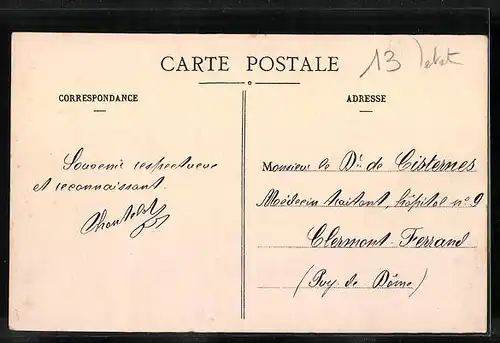 CARTE POSTALE
13
CORRESPONDANCE
ADRESSE
Souvenir respectueux
et reconnaissant.
Monsieur le Dr. de Cisternes
Médecin traitant, hôpital no 9
Clermont-Ferrand
(Puy de Dôme)